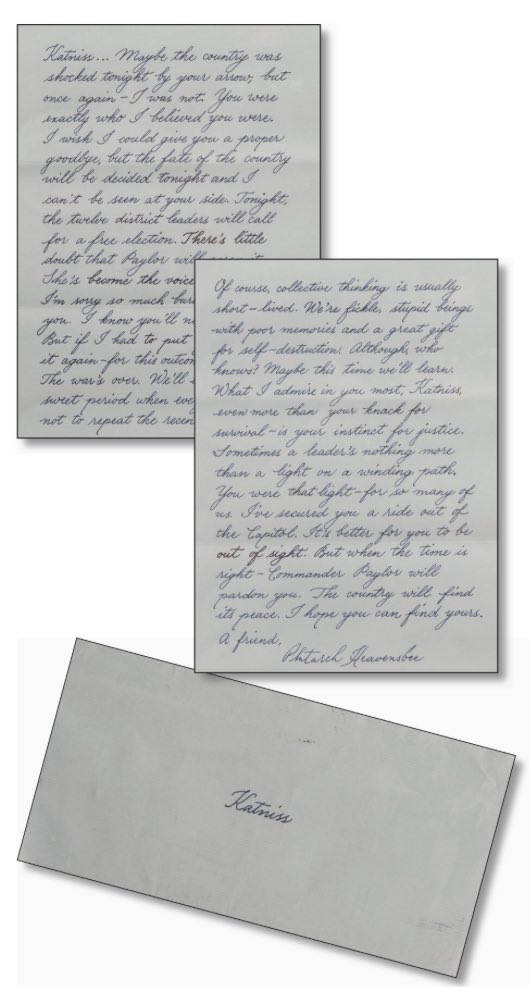 Katniss... Maybe the country was
shocked tonight by your arrow, but
once again – I was not. You were
exactly who I believed you were.
I wish I could give you a proper
goodbye, but the fate of the country
will be decided tonight and I
can't be seen at your side. Tonight,
the twelve district leaders will call
for a free election. There's little
doubt that Paylor will
She's become the voice
I'm sorry so much
you. I know you'll
But if I had to put
it again – for this
The war's over. We'll
sweet period when
not to repeat the recen
Of course, collective thinking is usually
short – lived. We're fickle, stupid beings
with poor memories and a great gift
for self – destruction. Although, who
knows? Maybe this time we'll learn.
What I admire in you most, Katniss,
even more than your knack for
survival – is your instinct for justice.
Sometimes a leader's nothing more
than a light on a winding path.
You were that light – for so many of
us. I've secured you a ride out of
the Capitol. It's better for you to be
out of sight. But when the time is
right – Commander Paylor will
pardon you. The country will find
its peace. I hope you can find yours.
A friend,
Plutarch Heavensbee
Katniss